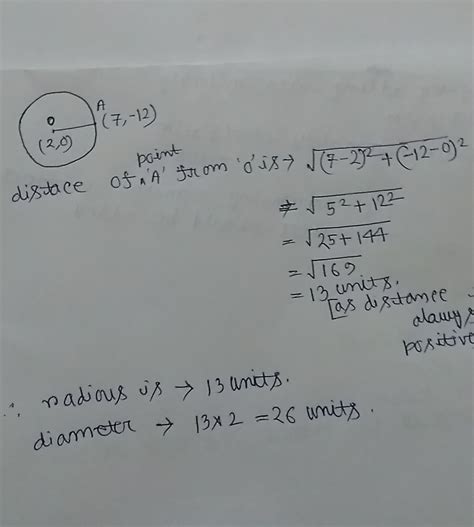 A
O (7,-12)
(2,0)
point
distace of ∧'A' from 'O' is → √(7-2)² + (-12-0)²
≠ √5² + 12²
= √25 + 144
= √169
= 13 units.
[as distance
always
positive
∴ radious is → 13 units.
diameter → 13×2 = 26 units.